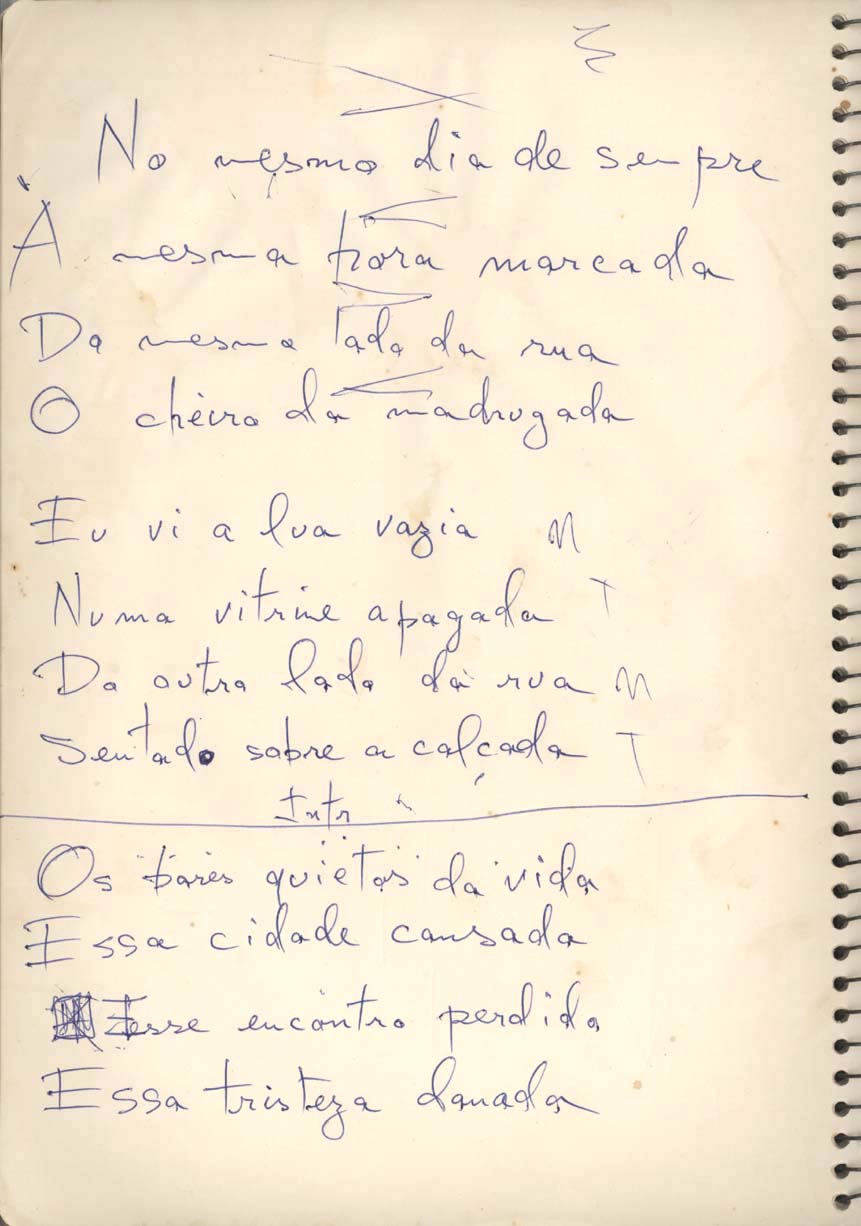 No mesmo dia de sempre
À mesma hora marcada
Do mesmo lado da rua
O cheiro da madrugada
Eu vi a lua vazia M
Numa vitrine apagada T
Do outro lado da rua M
Sentado sobre a calçada T
Intr
Os bares quietos da vida
Essa cidade cansada
Esse encontro perdido
Essa tristeza danada